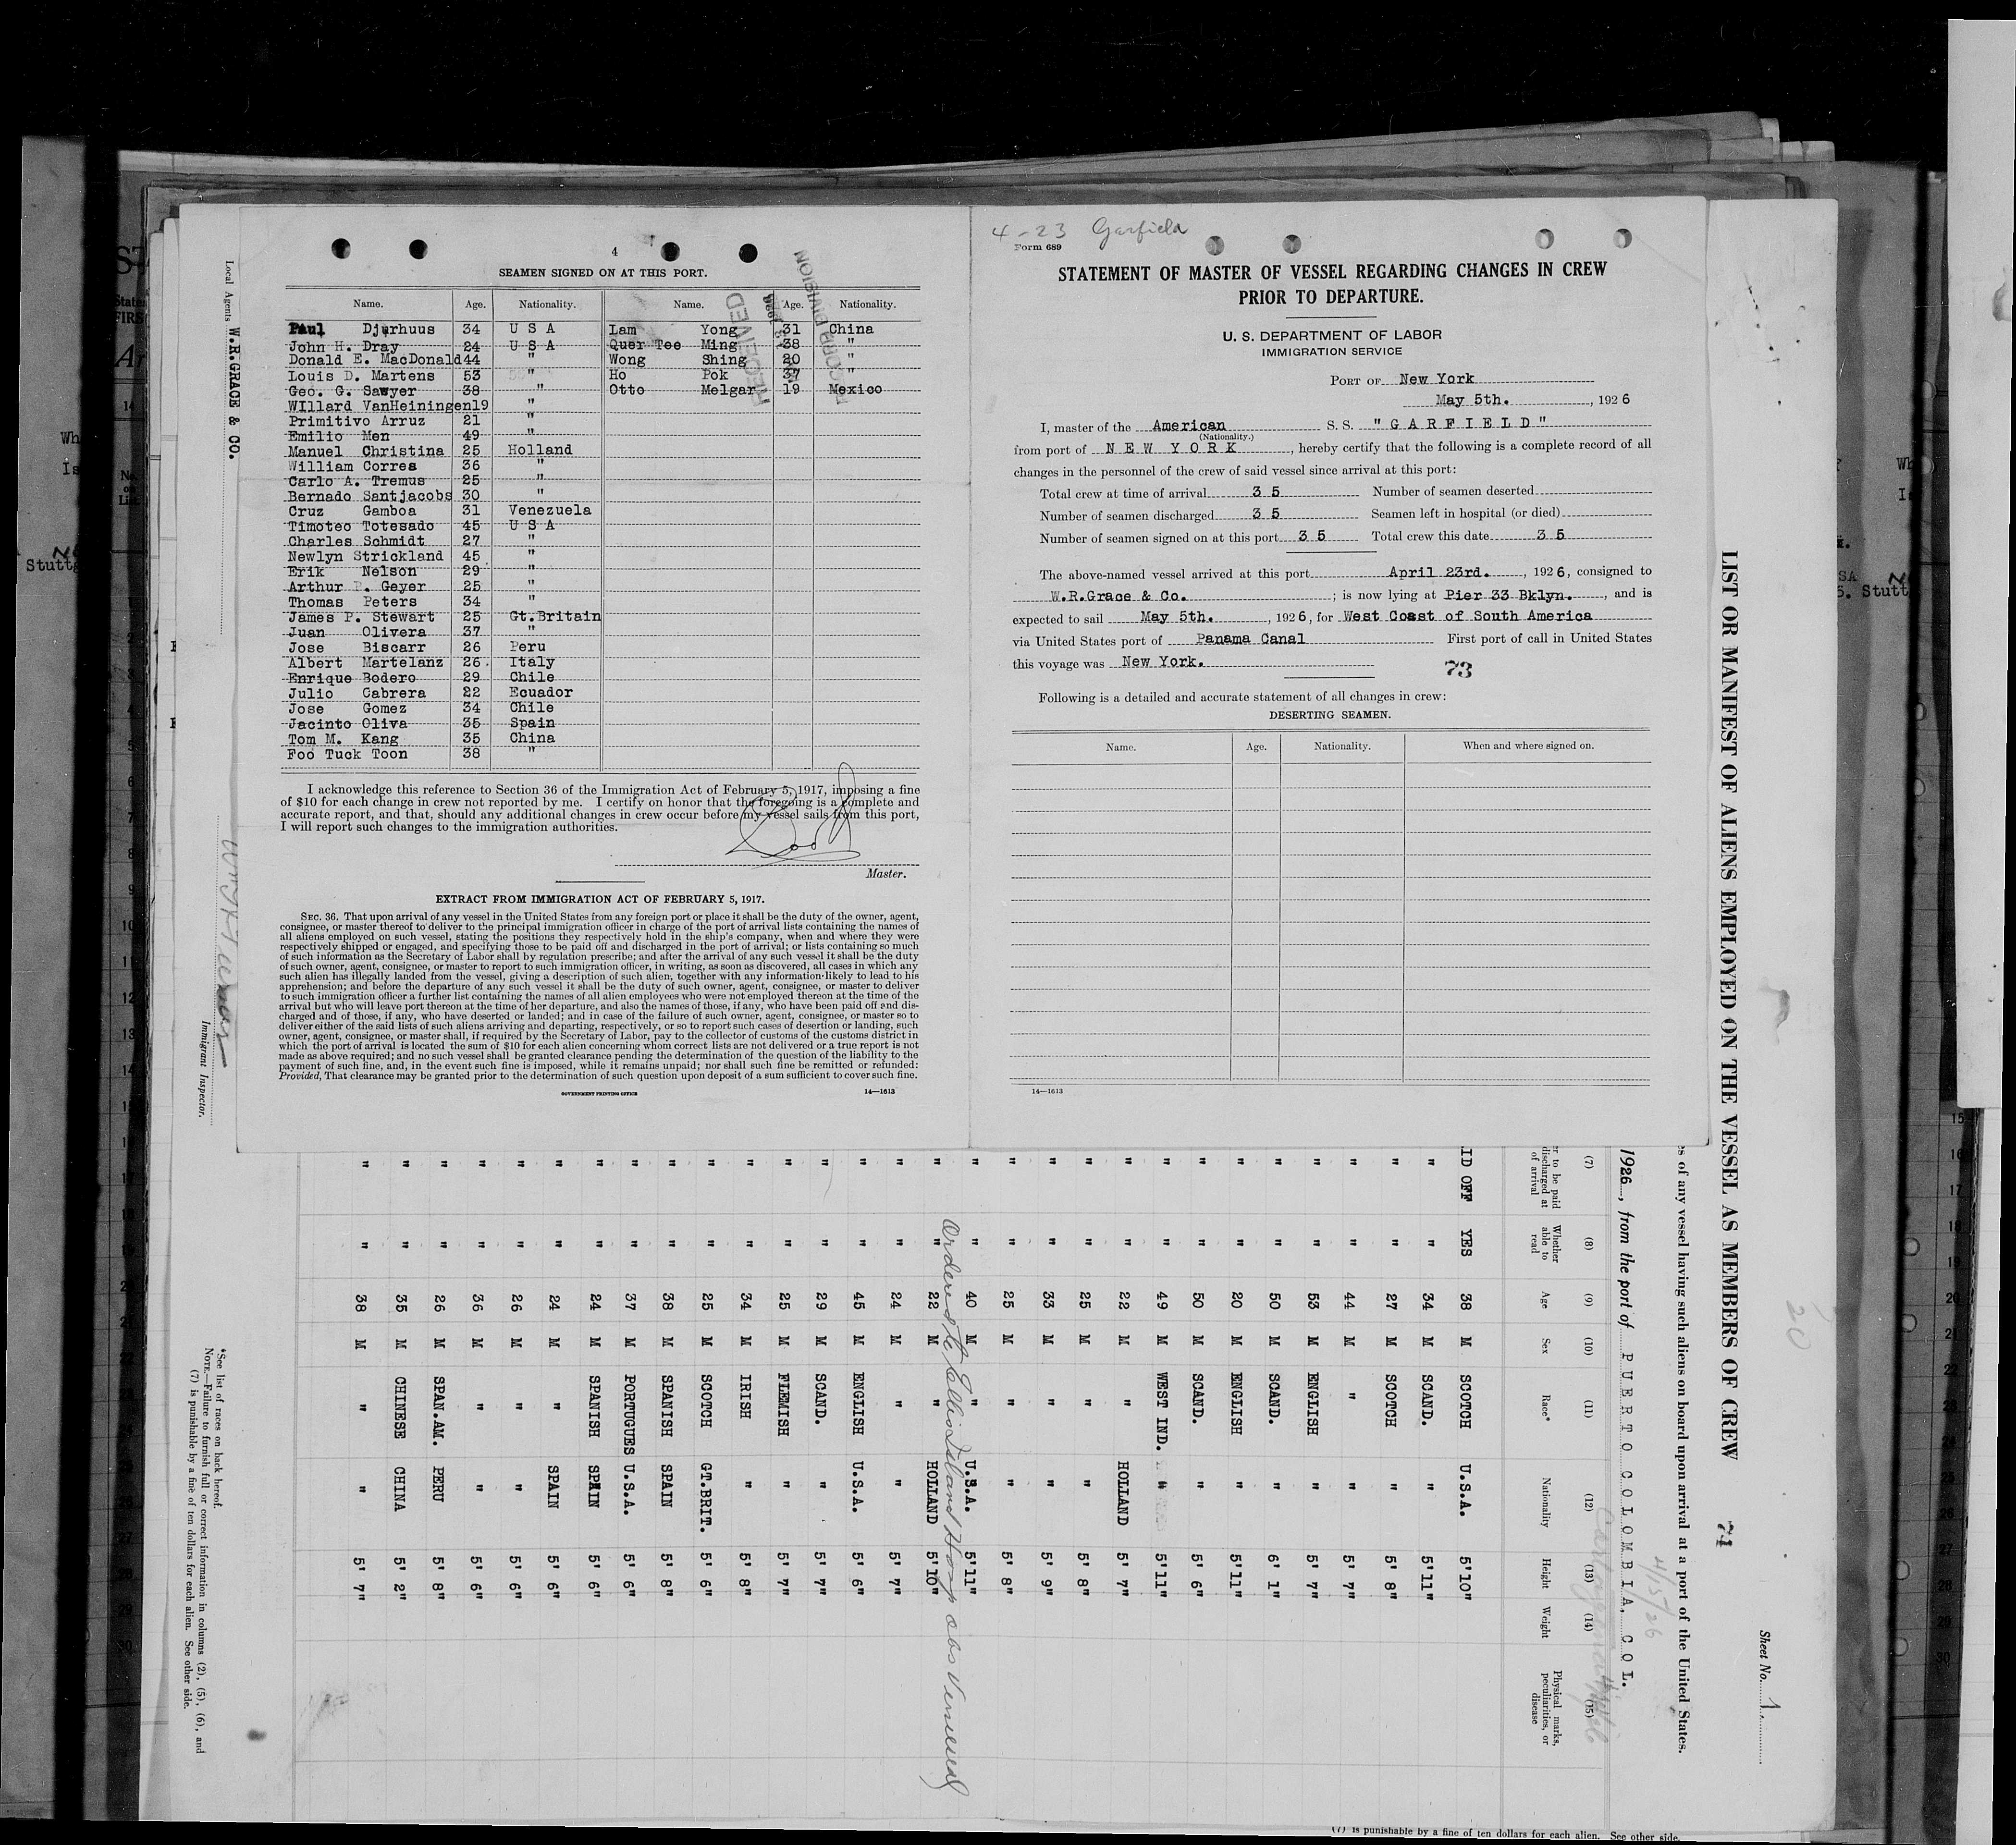 4
SEAMEN SIGNED ON AT THIS PORT.
Name. Age. Nationality. Name. Age. Nationality.
Paul Djurhuus 34 U S A Lam Yong 31 China
John H. Dray 24 U S A Quer Tee Ming 38 "
Donald E. MacDonald 44 " Wong Shing 20 "
Louis D. Martens 53 " Ho Pok 37 "
Geo. G. Sawyer 38 " Otto Melgar 19 Mexico
WIllard VanHeiningen 19 "
Primitivo Arruz 21 "
Emilio Men 49 "
Manuel Christina 25 Holland
William Correa 36 "
Carlo A. Tremus 25 "
Bernado Santjacobs 30 "
Cruz Gamboa 31 Venezuela
Timoteo Totesado 45 U S A
Charles Schmidt 27 "
Newlyn Strickland 45 "
Erik Nelson 29 "
Arthur P. Geyer 25 "
Thomas Peters 34 "
James P. Stewart 25 Gt.Britain
Juan Olivera 37 "
Jose Biscarr 26 Peru
Albert Martelanz 26 Italy
Enrique Bodero 29 Chile
Julio Cabrera 22 Ecuador
Jose Gomez 34 Chile
Jacinto Oliva 35 Spain
Tom M. Kang 35 China
Foo Tuck Toon 38 "
RECEIVED
RECORD DIVISION
I acknowledge this reference to Section 36 of the Immigration Act of February 5, 1917, imposing a fine
of $10 for each change in crew not reported by me. I certify on honor that the foregoing is a complete and
accurate report, and that, should any additional changes in crew occur before my vessel sails from this port,
I will report such changes to the immigration authorities.
Master.
EXTRACT FROM IMMIGRATION ACT OF FEBRUARY 5, 1917.
SEC. 36. That upon arrival of any vessel in the United States from any foreign port or place it shall be the duty of the owner, agent,
consignee, or master thereof to deliver to the principal immigration officer in charge of the port of arrival lists containing the names of
all aliens employed on such vessel, stating the positions they respectively hold in the ship's company, when and where they were
respectively shipped or engaged, and specifying those to be paid off and discharged in the port of arrival; or lists containing so much
of such information as the Secretary of Labor shall by regulation prescribe; and after the arrival of any such vessel it shall be the duty
of such owner, agent, consignee, or master to report to such immigration officer, in writing, as soon as discovered, all cases in which any
such alien has illegally landed from the vessel, giving a description of such alien, together with any information likely to lead to his
apprehension; and before the departure of any such vessel it shall be the duty of such owner, agent, consignee, or master to deliver
to such immigration officer a further list containing the names of all alien employees who were not employed thereon at the time of the
arrival but who will leave port thereon at the time of her departure, and also the names of those, if any, who have been paid off and dis-
charged and of those, if any, who have deserted or landed; and in case of the failure of such owner, agent, consignee, or master so to
deliver either of the said lists of such aliens arriving and departing, respectively, or so to report such cases of desertion or landing, such
owner, agent, consignee, or master shall, if required by the Secretary of Labor, pay to the collector of customs of the customs district in
which the port of arrival is located the sum of $10 for each alien concerning whom correct lists are not delivered or a true report is not
made as above required; and no such vessel shall be granted clearance pending the determination of the question of the liability to the
payment of such fine, and, in the event such fine is imposed, while it remains unpaid; nor shall such fine be remitted or refunded:
Provided, That clearance may be granted prior to the determination of such question upon deposit of a sum sufficient to cover such fine.
GOVERNMENT PRINTING OFFICE 14—1613
4-23 Garfield
Form 689
STATEMENT OF MASTER OF VESSEL REGARDING CHANGES IN CREW
PRIOR TO DEPARTURE.
U. S. DEPARTMENT OF LABOR
IMMIGRATION SERVICE
PORT OF New York
May 5th., 1926
I, master of the American S. S. "GARFIELD"
(Nationality.)
from port of NEW YORK, hereby certify that the following is a complete record of all
changes in the personnel of the crew of said vessel since arrival at this port:
Total crew at time of arrival 35 Number of seamen deserted
Number of seamen discharged 35 Seamen left in hospital (or died)
Number of seamen signed on at this port 35 Total crew this date 35
The above-named vessel arrived at this port April 23rd., 1926, consigned to
W.R.Grace & Co.; is now lying at Pier 33 Bklyn., and is
expected to sail May 5th., 1926, for West Coast of South America
via United States port of Panama Canal First port of call in United States
this voyage was New York.
73
Following is a detailed and accurate statement of all changes in crew:
DESERTING SEAMEN.
Name. Age. Nationality. When and where signed on.
14—1613
Local Agents W.R.GRACE & CO.
Immigrant Inspector.
Sheet No. 1
LIST OR MANIFEST OF ALIENS EMPLOYED ON THE VESSEL AS MEMBERS OF CREW 74
20
es of any vessel having such aliens on board upon arrival at a port of the United States.
4/15/26
1926, from the port of PUERTO COLOMBIA, COL.
(7) (8) (9) (10) (11) (12) (13) (14) (15)
er to be paid discharged at of arrival
Whether able to read
Age Sex Race* Nationality Height Weight
Physical marks, peculiarities, or disease
ID OFF YES 38 M SCOTCH U.S.A. 5'10"
" " 34 M SCAND. " 5'11"
" " 27 M SCOTCH " 5' 8"
" " 44 M " " 5' 7"
" " 53 M ENGLISH " 5' 7"
" " 50 M SCAND. " 6' 1"
" " 20 M ENGLISH " 5'11"
" " 50 M SCAND. " 5' 6"
" " 49 M WEST IND. " 5'11"
" " 22 M " HOLLAND 5' 7"
" " 25 M " " 5' 8"
" " 33 M " " 5' 9"
" " 25 M " " 5' 8"
" " 40 M " U.S.A. 5'11"
Ordered to Ellis Island Hosp
" " 22 M " HOLLAND 5'10"
" " 24 M " " 5' 7"
" " 45 M ENGLISH U.S.A. 5' 6"
" " 29 M SCAND. " 5' 7"
" " 25 M FLEMISH " 5' 7"
" " 34 M IRISH " 5' 8"
" " 25 M SCOTCH GT.BRIT. 5' 6"
" " 38 M SPANISH SPAIN 5' 8"
" " 37 M PORTUGUES U.S.A. 5' 6"
" " 24 M SPANISH SPAIN 5' 6"
" " 24 M " SPAIN 5' 6"
" " 26 M " " 5' 6"
" " 36 M " " 5' 6"
" " 26 M SPAN.AM. PERU 5' 8"
" " 35 M CHINESE CHINA 5' 2"
" " 38 M " " 5' 7"
*See list of races on back hereof.
NOTE.—Failure to furnish full or correct information in columns (2), (5), (6), and
(7) is punishable by a fine of ten dollars for each alien. See other side.
(7) is punishable by a fine of ten dollars for each alien. See other side.